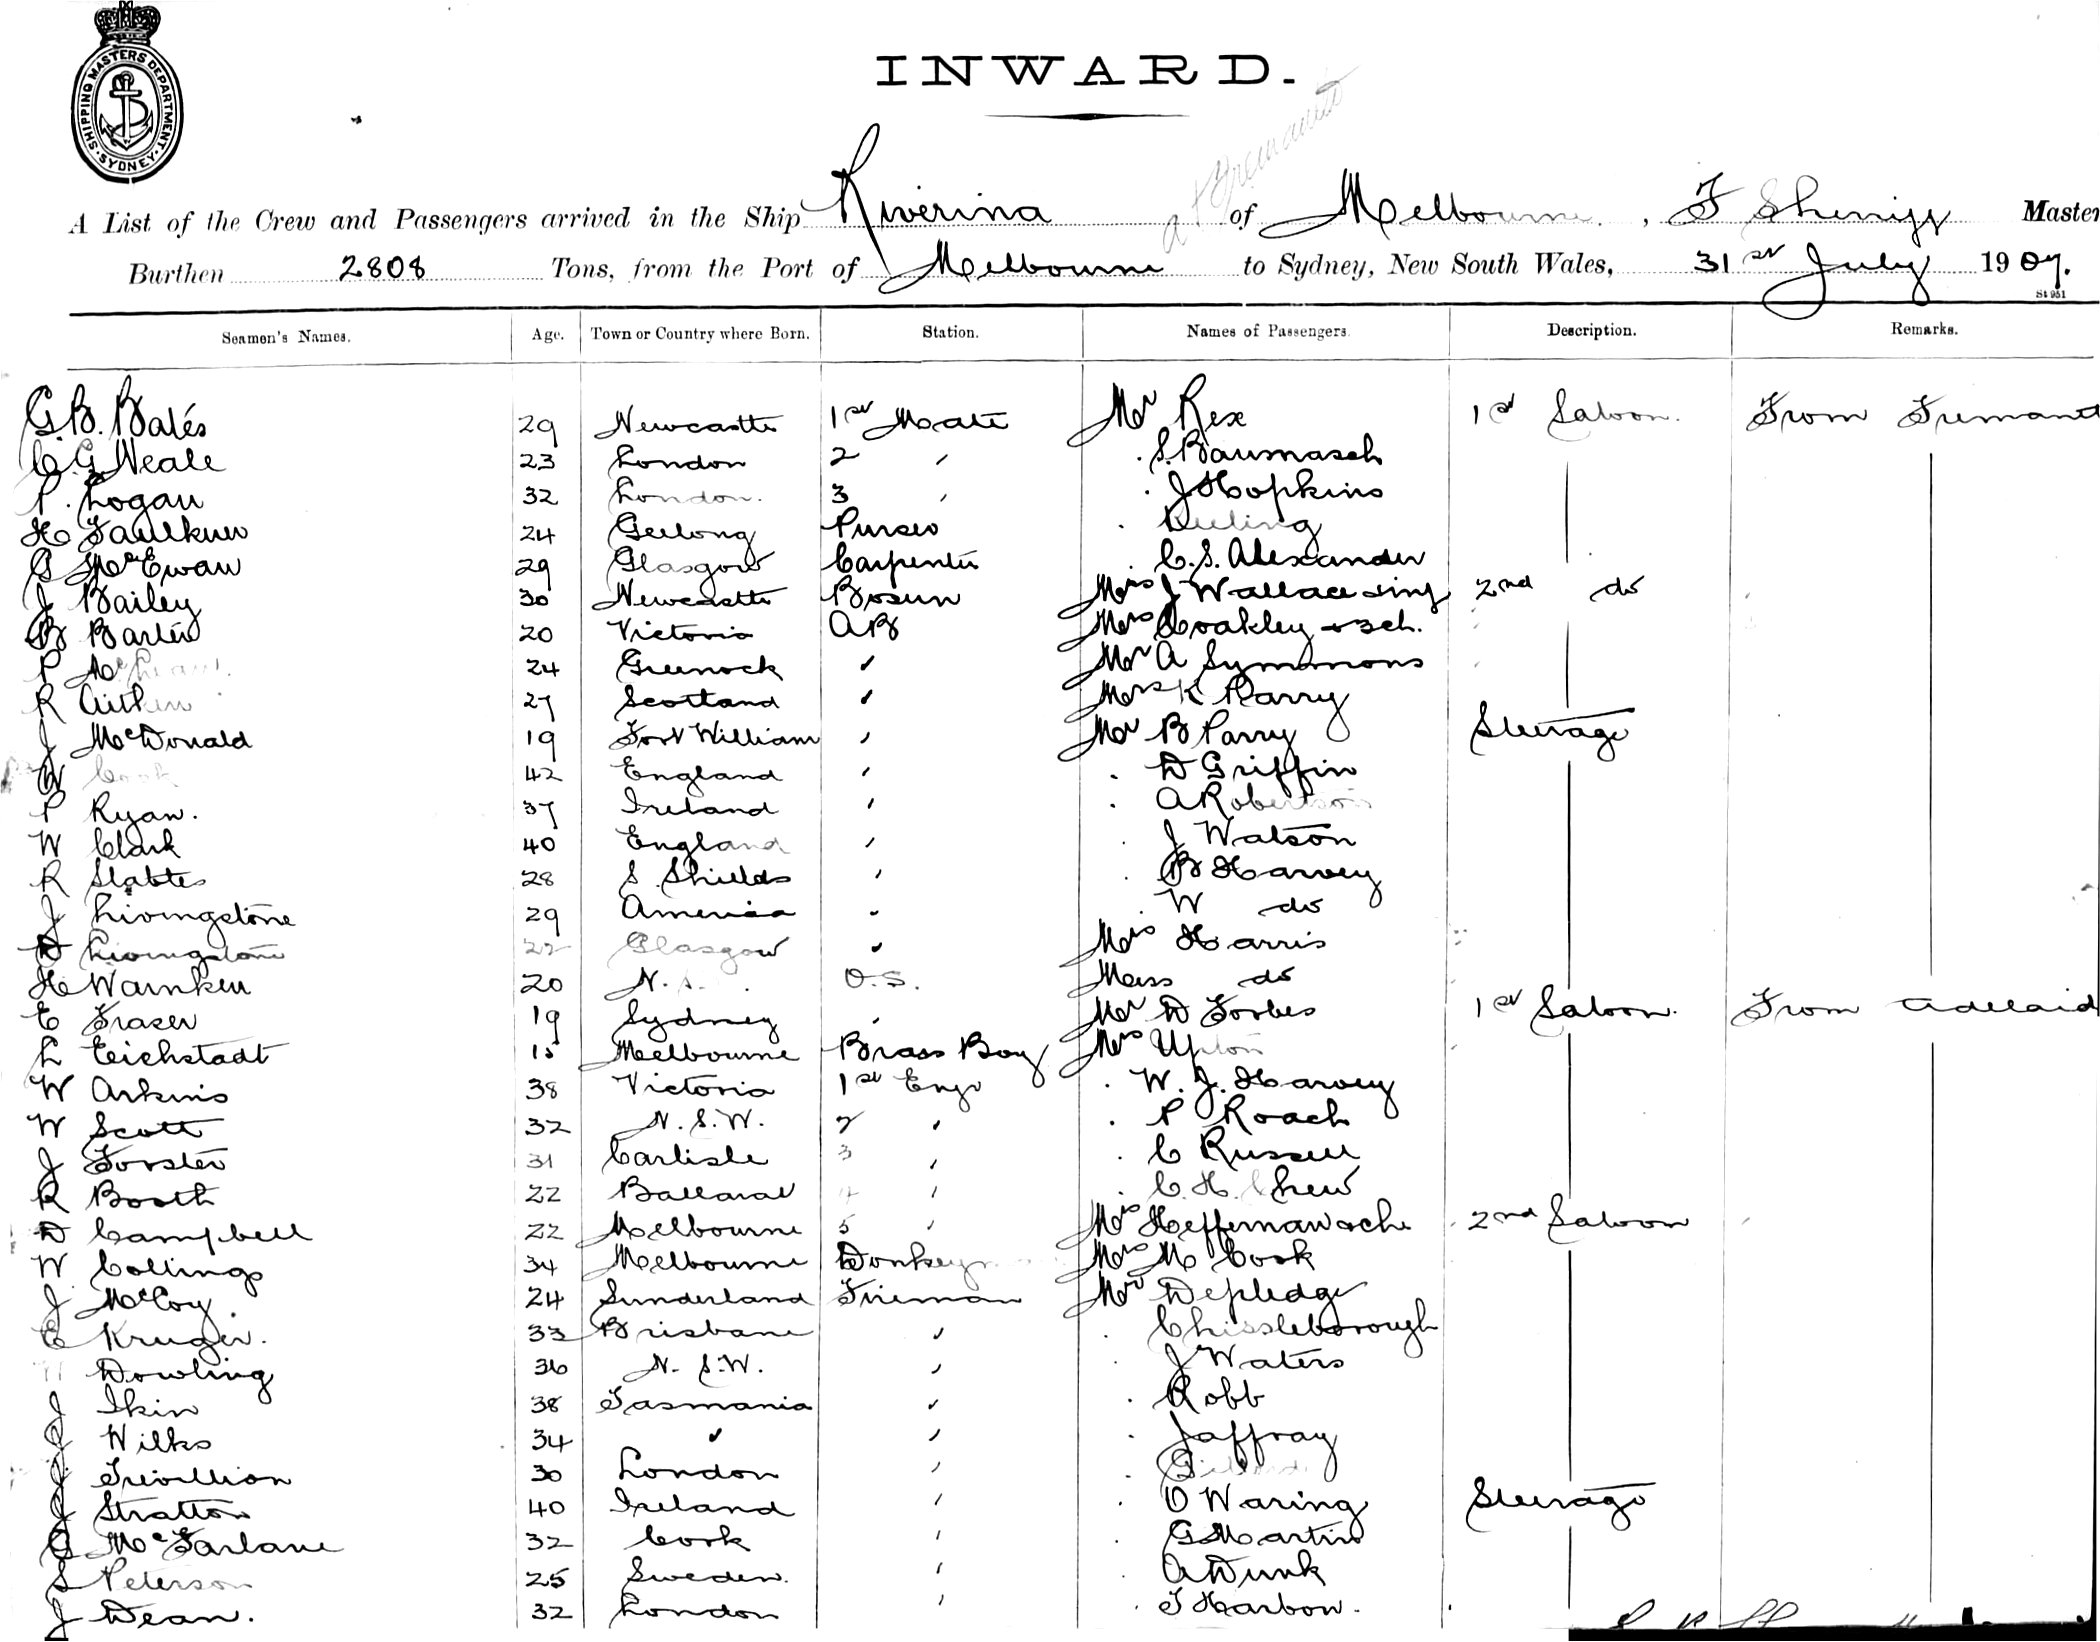 SHIPPING MASTERS DEPARTMENT. SYDNEY.
INWARD.
A List of the Crew and Passengers arrived in the Ship Riverina of Melbourne, F Master
Burthen 2808 Tons, from the Port of Melbourne to Sydney, New South Wales, 31st July 1907.
St 951
Seamen's Names. Age. Town or Country where Born. Station. Names of Passengers. Description. Remarks.
G.B. Bates 29 Newcastle 1st Mate Mr Rex 1st Saloon. From Fremant
C G Neale 23 London 2 " . S. Baumasch
P. Logan 32 London. 3 " . J Hopkins
H Faulkner 24 Geelong Purser .
G McEwan 29 Glasgow Carpenter . C. S. Alexander
J Bailey 30 Newcastle Bosun Mrs J Wallace & inf 2nd do
B Barter 20 Victoria AB Mrs Coakley & 3 ch.
P 24 Greenock " Mr A Symmons
R Aitken 27 Scotland " Mrs K Parry
J McDonald 19 Fort William " Mr B Parry Steerage
W Cook 42 England " . D Griffin
P Ryan. 37 Ireland " . A Robertson
W Clark 40 England " . J Watson
R Slabter 28 S. Shields " . B Harvey
J Livingstone 29 America " . W do
D Livingstone 22 Glasgow " Mrs Harris
H Warnken 20 N. S. O.S. Miss do
E Fraser 19 Sydney " Mr D Forbes 1st Saloon. From Adelaid
L Eichstadt 15 Melbourne Brass Boy Mrs Upton
W Arkins 38 Victoria 1st Engr . W. J. Harvey
W Scott 32 N. S. W. 2 " . P Roach
J Forster 31 Carlisle 3 " . C Russell
R Booth 22 Ballarat 4 " . C. H. Chew
D Campbell 22 Melbourne 5 " Mrs Heffernan & ch 2nd Saloon
W Collings 34 Melbourne Donkeyman Mrs M Cook
J McCoy. 24 Sunderland Fireman Mr Depledge
E Kruger. 33 Brisbane " . Chissleborough
Dowling 36 N. S.W. " . J Waters
J Ikin 38 Tasmania " . Robb
J Wilks 34 " " . Jaffray
J Trevillion 30 London " .
J Stratton 40 Ireland " . O Waring Steerage
G McFarlane 32 Cork " . G Martin
S Peterson 25 Sweden. " . A Dunk
J Dean. 32 London " . T Harbow.